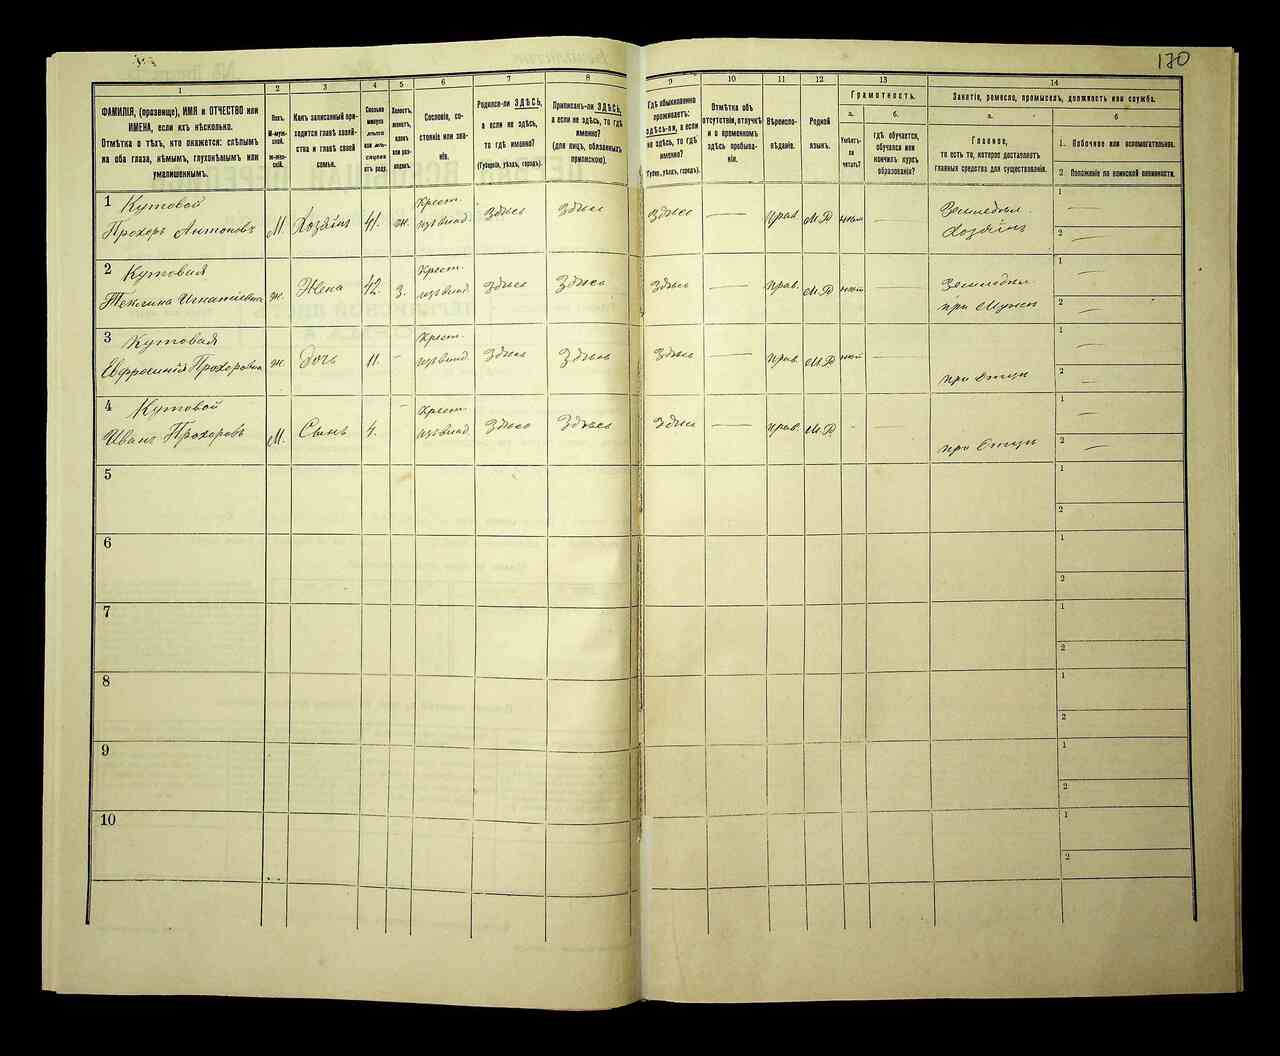 170
1 2 3 4 5 6 7 8 9 10 11 12 13 14
ФАМИЛІЯ, (прозвище), ИМЯ и ОТЧЕСТВО или
ИМЕНА, если ихъ нѣсколько.
Отмѣтка о тѣхъ, кто окажется: слѣпымъ
на оба глаза, нѣмымъ, глухонѣмымъ или
умалишеннымъ.
Полъ.
М-муж-
ской.
ж-жен-
скій.
Какъ записанный при-
ходится главѣ хозяй-
ства и главѣ своей
семьи.
Сколько
минуло
лѣтъ
или мѣ-
сяцевъ
отъ роду.
Холостъ,
женатъ,
вдовъ
или раз-
веденъ.
Сословіе, со-
стояніе или зва-
ніе.
Родился-ли ЗДѢСЬ,
а если не здѣсь,
то гдѣ именно?
(Губернія, уѣздъ, городъ).
Приписанъ-ли ЗДѢСЬ,
а если не здѣсь, то гдѣ
именно?
(для лицъ, обязанныхъ
припискою).
Гдѣ обыкновенно
проживаетъ:
здѣсь-ли, а если
не здѣсь, то гдѣ
именно?
(Губерн., уѣздъ, городъ).
Отмѣтка объ
отсутствіи, отлучкѣ
и о временномъ
здѣсь пребыва-
ніи.
Вѣроиспо-
вѣданіе.
Родной
языкъ.
Грамотность.
а. б.
Умѣетъ-
ли
читать?
гдѣ обучается,
обучался или
кончилъ курсъ
образованія?
Занятіе, ремесло, промыселъ, должность или служба.
а. б
Главное,
то есть то, которое доставляетъ
главныя средства для существованія.
1. Побочное или вспомогательное.
2. Положеніе по воинской повинности.
1 Кутовой
Прохоръ Антоновъ М. Хозяинъ 41. ж. Крест. изъ влад. Здѣсь Здѣсь Здѣсь — Прав. М.Р. нѣтъ — Земледѣл. Хозяинъ 1 — 2 —
2 Кутовая
Игнатіевна ж. Жена 42. з. Крест. изъ влад. Здѣсь Здѣсь Здѣсь — Прав. М.Р нѣтъ — Земледѣл. при Мужѣ 1 — 2 —
3 Кутовая
Евфросинія Прохоровна ж. Дочь 11. - Крест. изъ влад. Здѣсь Здѣсь Здѣсь — Прав. М.Р нѣтъ — при Отцѣ 1 — 2 —
4 Кутовой
Иванъ Прохоровъ М. Сынъ 4. - Крест. изъ влад. Здѣсь Здѣсь Здѣсь — Прав. М.Р. - — при Отцѣ 1 — 2 —
5 1
2
6 1
2
7 1
2
8 1
2
9 1
2
10 1
2